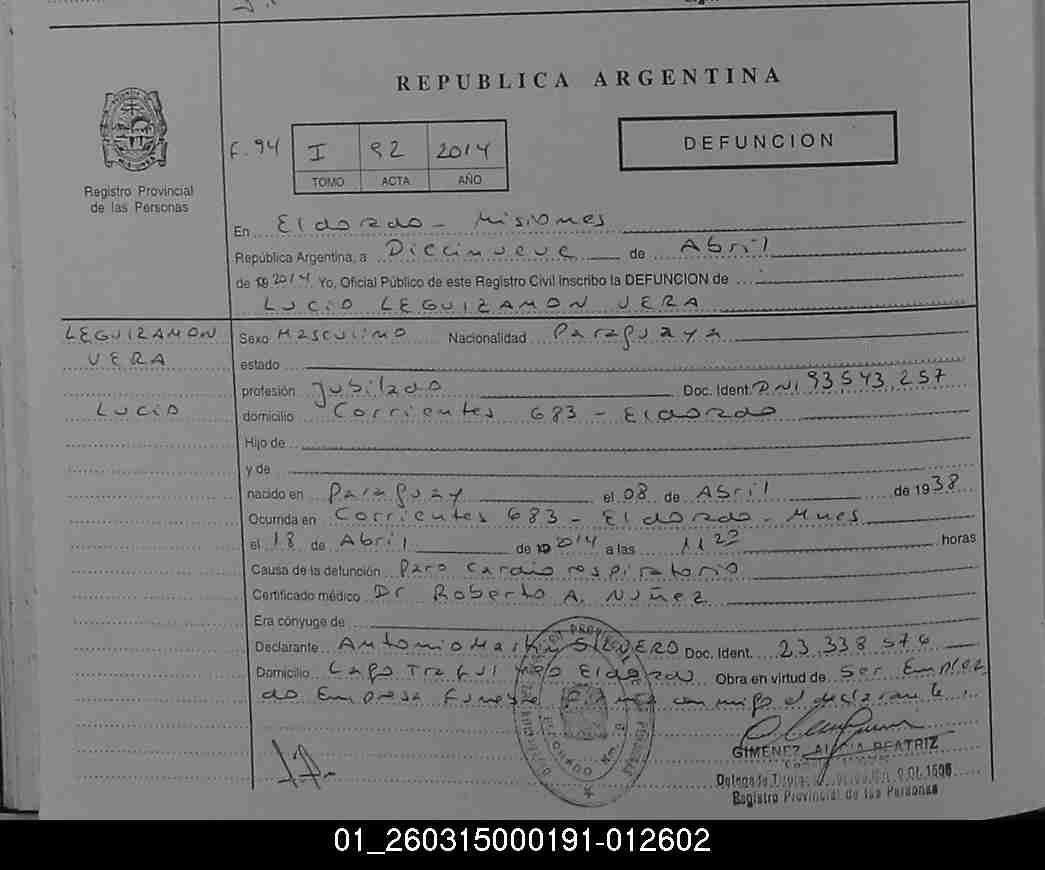 REPUBLICA ARGENTINA
DEFUNCION
F. 94 I 92 2014
TOMO ACTA AÑO
Registro Provincial
de las Personas
En Eldorado - Misiones
República Argentina, a Diecinueve de Abril
de 2014 Yo, Oficial Público de este Registro Civil inscribo la DEFUNCION de
LUCIO LEGUIZAMON VERA
LEGUIZAMON
VERA
LUCIO
Sexo Masculino Nacionalidad Paraguaya
estado
profesión Jubilado Doc. Ident. DNI 93543.257
domicilio Corrientes 683 - Eldorado
Hijo de
y de
nacido en Paraguay el 08 de Abril de 1938
Ocurrida en Corrientes 683 - Eldorado - Mnes
el 18 de Abril de 2014 a las 11 22 horas
Causa de la defunción Paro Cardio respiratorio
Certificado médico Dr Roberto A. Nuñez
Era cónyuge de
Declarante Antonio Martin SILVERO Doc. Ident. 23.338 576
Domicilio Lago Traful Eldorado Obra en virtud de Ser Emplea
do Empresa Funebre conmigo el declarante
GIMENEZ ALICIA BEATRIZ
Registro Provincial de las Personas
01_260315000191-012602